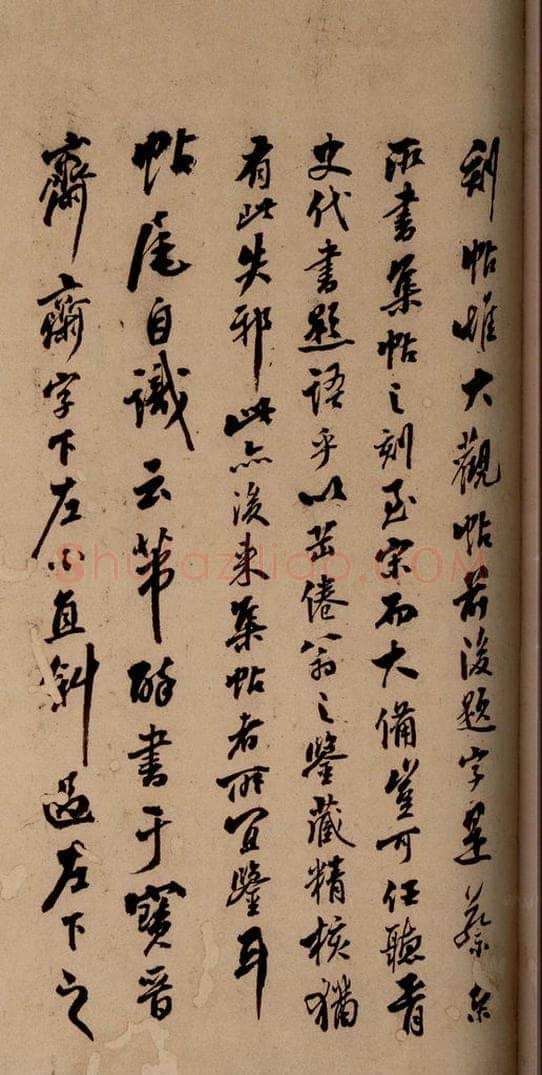 刻帖惟大觀帖前後題字是蔡京
所書集帖之刻至宋而大備豈可任聽胥
史代書題語乎以岳倦翁之鑒藏精核猶
有此失邪此亦後來集帖者所宜鑒耳
帖尾自識云芾醉書于寶晉
齋齋字下左小直斜過左下之
shufaziliao.COM